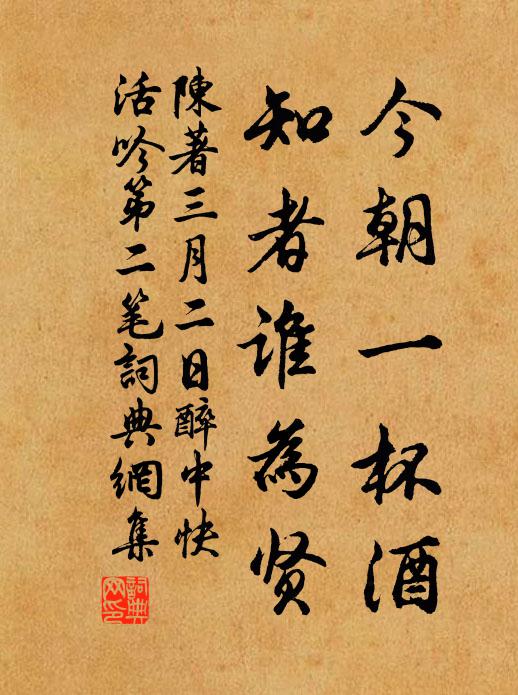 今朝一杯酒
知者谁為贤
陳著三月二日醉中快
活吟第二笔詞典網集
詞典网印